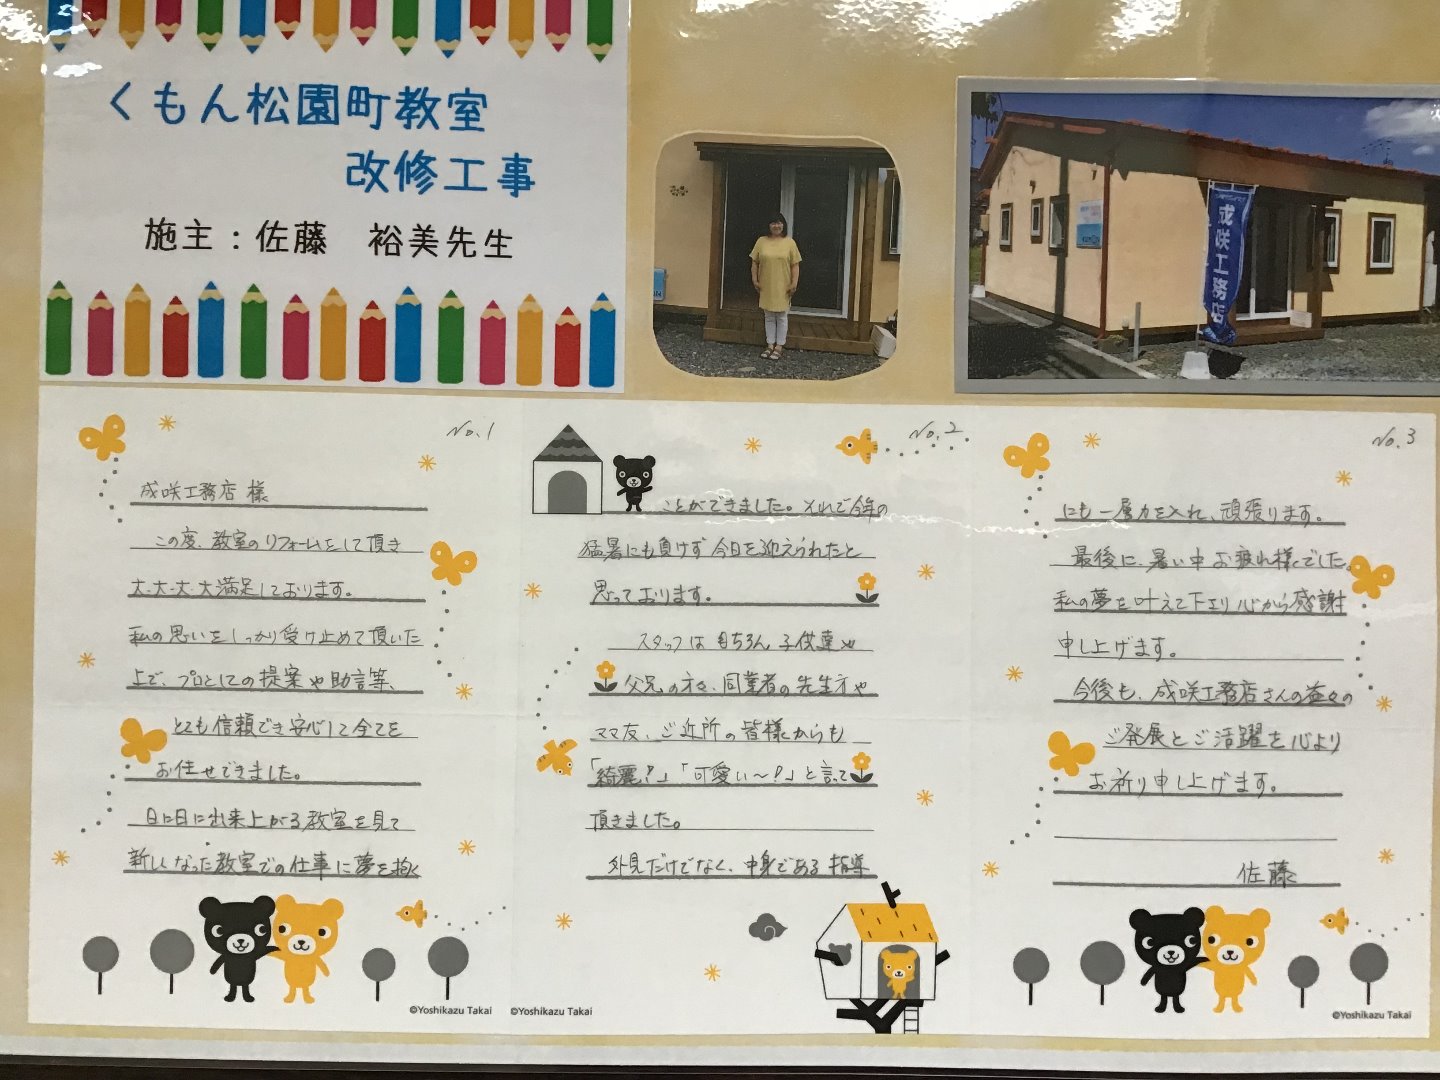 くもん松園町教室
改修工事
施主：佐藤　裕美先生
成咲工務店
No.1
成咲工務店 様
この度、教室のリフォームをして頂き
大・大・大・大満足しております。
私の思いをしっかり受け止めて頂いた
上で、プロとしての提案や助言等、
とても信頼でき安心して全てを
お任せできました。
日に日に出来上がる教室を見て
新しくなった教室での仕事に夢を抱く
©Yoshikazu Takai
No.2
ことができました。それで今年の
猛暑にも負けず今日を迎えられたと
思っております。
スタッフはもちろん、子供達や
父兄の方々、同業者の先生方や
ママ友、ご近所の皆様からも
「綺麗!」「可愛い〜!」と言って
頂きました。
外見だけでなく、中身である指導
©Yoshikazu Takai
No.3
にも一層力を入れ、頑張ります。
最後に、暑い中お疲れ様でした。
私の夢を叶えて下さり心から感謝
申し上げます。
今後も、成咲工務店さんの益々の
ご発展とご活躍を心より
お祈り申し上げます。
佐藤
©Yoshikazu Takai